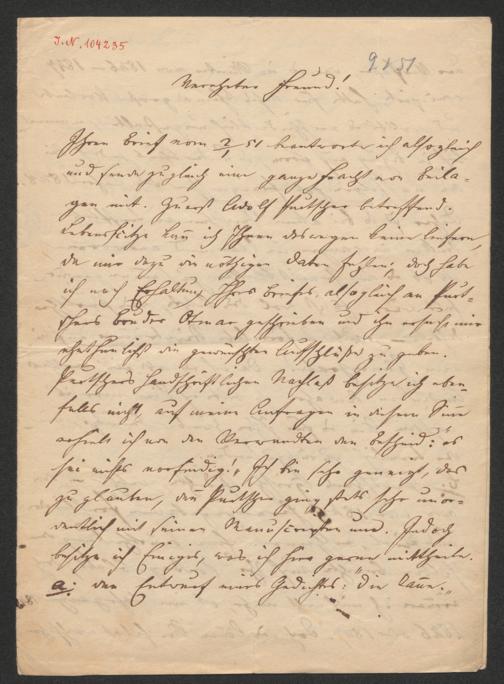 I.N. 104235
9/1 51
Verehrter Freund!
Ihren Brief vom 2/1 51 beantworte ich alsogleich
und sende zugleich eine ganze Fracht von Beila-
gen mit. Zuerst Adolf Purtscher betreffend.
Lebensskizze kann ich Ihnen deswegen keine liefern,
da mir dazu die nöthigen Daten fehlen; doch habe
ich nach Erhaltung Ihres Briefes alsogleich an Purt-
schers Bruder Otmar geschrieben und ihn ersucht mir
ehethunlichst die gewünschten Aufschlüße zu geben.
Purtschers handschriftlichen Nachlaß besitze ich eben-
falls nicht, auf meine Anfragen in diesem Sinne
erhielt ich von den Verwandten den Bescheid: "es
sei nichts vorfindig". Ich bin sehr geneigt, das
zu glauben, denn Purtscher ging stets sehr unor-
dentlich mit seinen Manuscripten um. Jedoch
besitze ich Einiges, was ich hier gerne mittheile.
a: den Entwurf eines Gedichts: "Die Tanne".